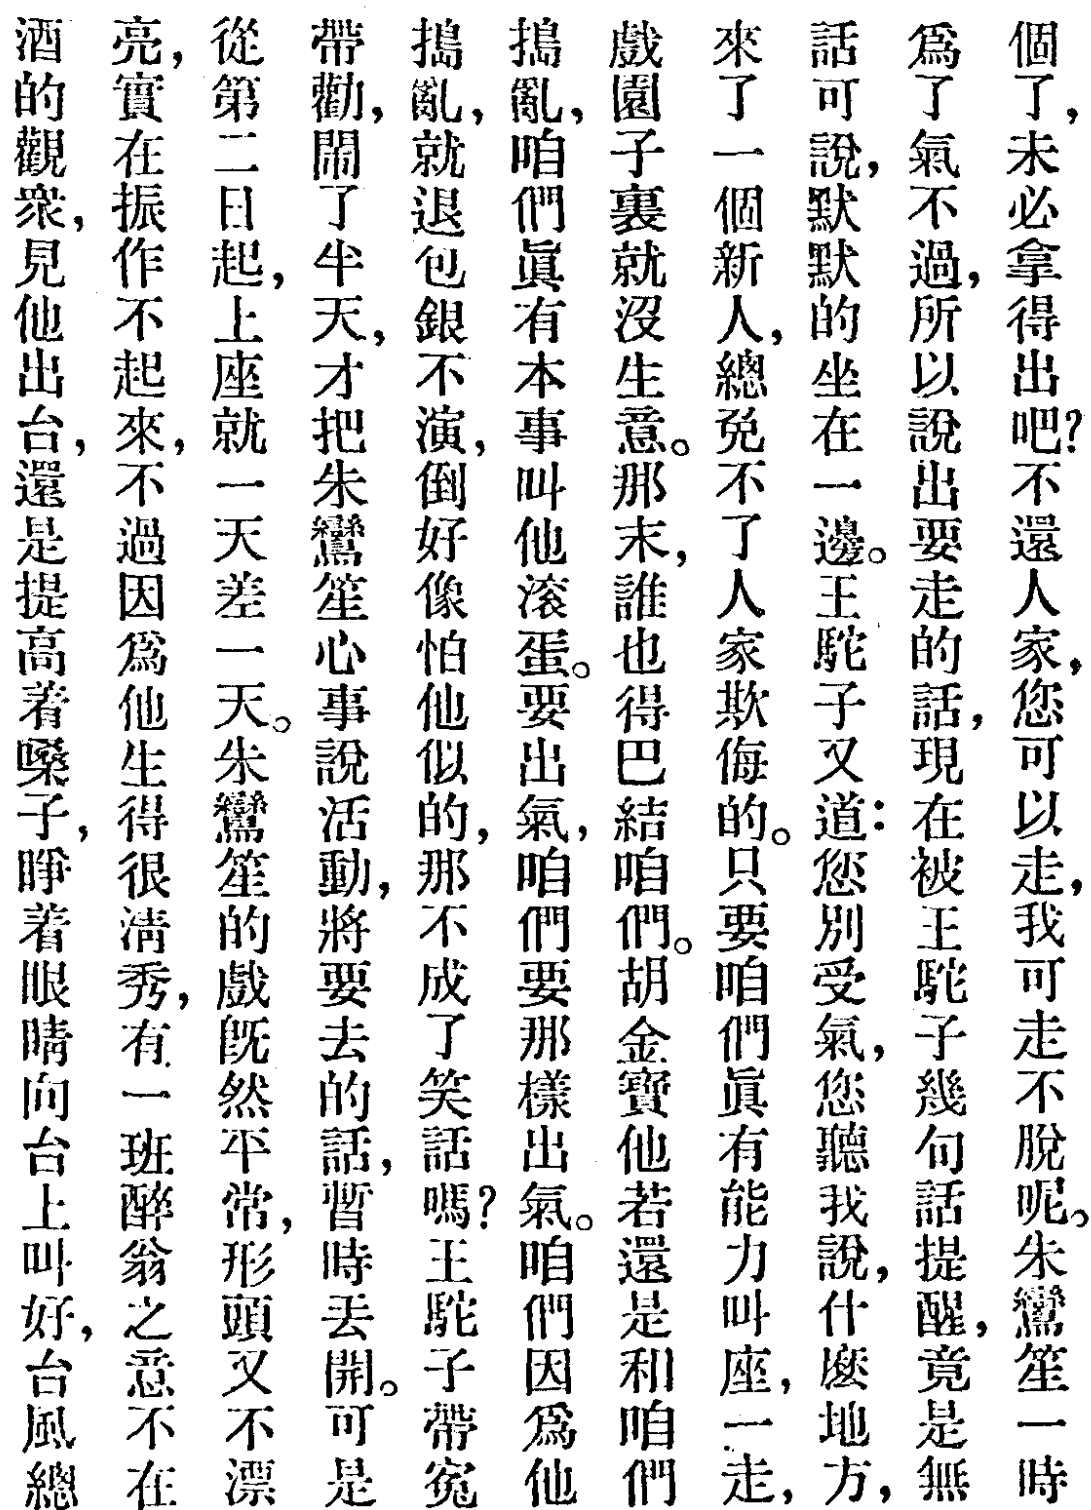 個了,未必拿得出吧?不還人家,您可以走,我可走不脫呢。朱鸞笙一時
爲了氣不過,所以說出要走的話,現在被王駝子幾句話提醒,竟是無
話可說,默默的坐在一邊。王駝子又道:您別受氣,您聽我說,什麽地方,
來了一個新人,總免不了人家欺侮的。只要咱們眞有能力叫座,一走,
戲園子裏就沒生意。那末,誰也得巴結咱們。胡金寶他若還是和咱們
搗亂,咱們眞有本事叫他滚蛋。要出氣,咱們要那樣出氣。咱們因爲他
搗亂,就退包銀不演,倒好像怕他似的,那不成了笑話嗎?王駝子帶寃
帶勸,鬧了半天,才把朱鸞笙心事說活動,將要去的話,暫時丟開。可是
從第二日起,上座就一天差一天。朱鸞笙的戲旣然平常,形頭又不漂
亮,實在振作不起來,不過因爲他生得很清秀,有一班醉翁之意不在
酒的觀衆,見他出台,還是提高着嗓子,睜着眼睛向台上叫好,台風總